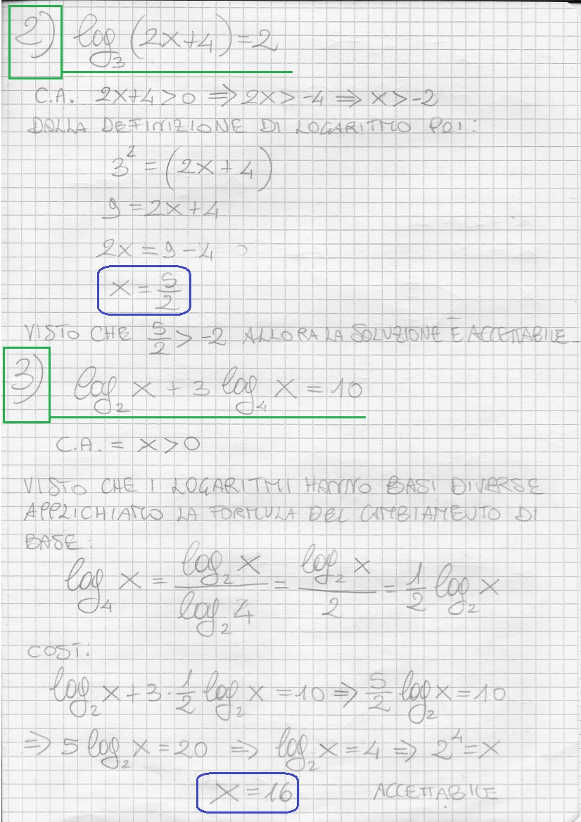 2) log₃(2x+4)=2
C.A. 2x+4>0 ⇒ 2x>-4 ⇒ x>-2
DALLA DEFINIZIONE DI LOGARITMO POI:
3² = (2x+4)
9 = 2x+4
2x = 9-4
x = 5/2
VISTO CHE 5/2 > -2 ALLORA LA SOLUZIONE È ACCETTABILE.
3) log₂ x + 3 log₄ x = 10
C.A. = x>0
VISTO CHE I LOGARITMI HANNO BASI DIVERSE
APPLICHIAMO LA FORMULA DEL CAMBIAMENTO DI
BASE:
log₄ x = log₂ x / log₂ 4 = log₂ x / 2 = 1/2 log₂ x
COSÌ:
log₂ x + 3 · 1/2 log₂ x = 10 ⇒ 5/2 log₂ x = 10
⇒ 5 log₂ x = 20 ⇒ log₂ x = 4 ⇒ 2⁴ = x
x = 16 ACCETTABILE